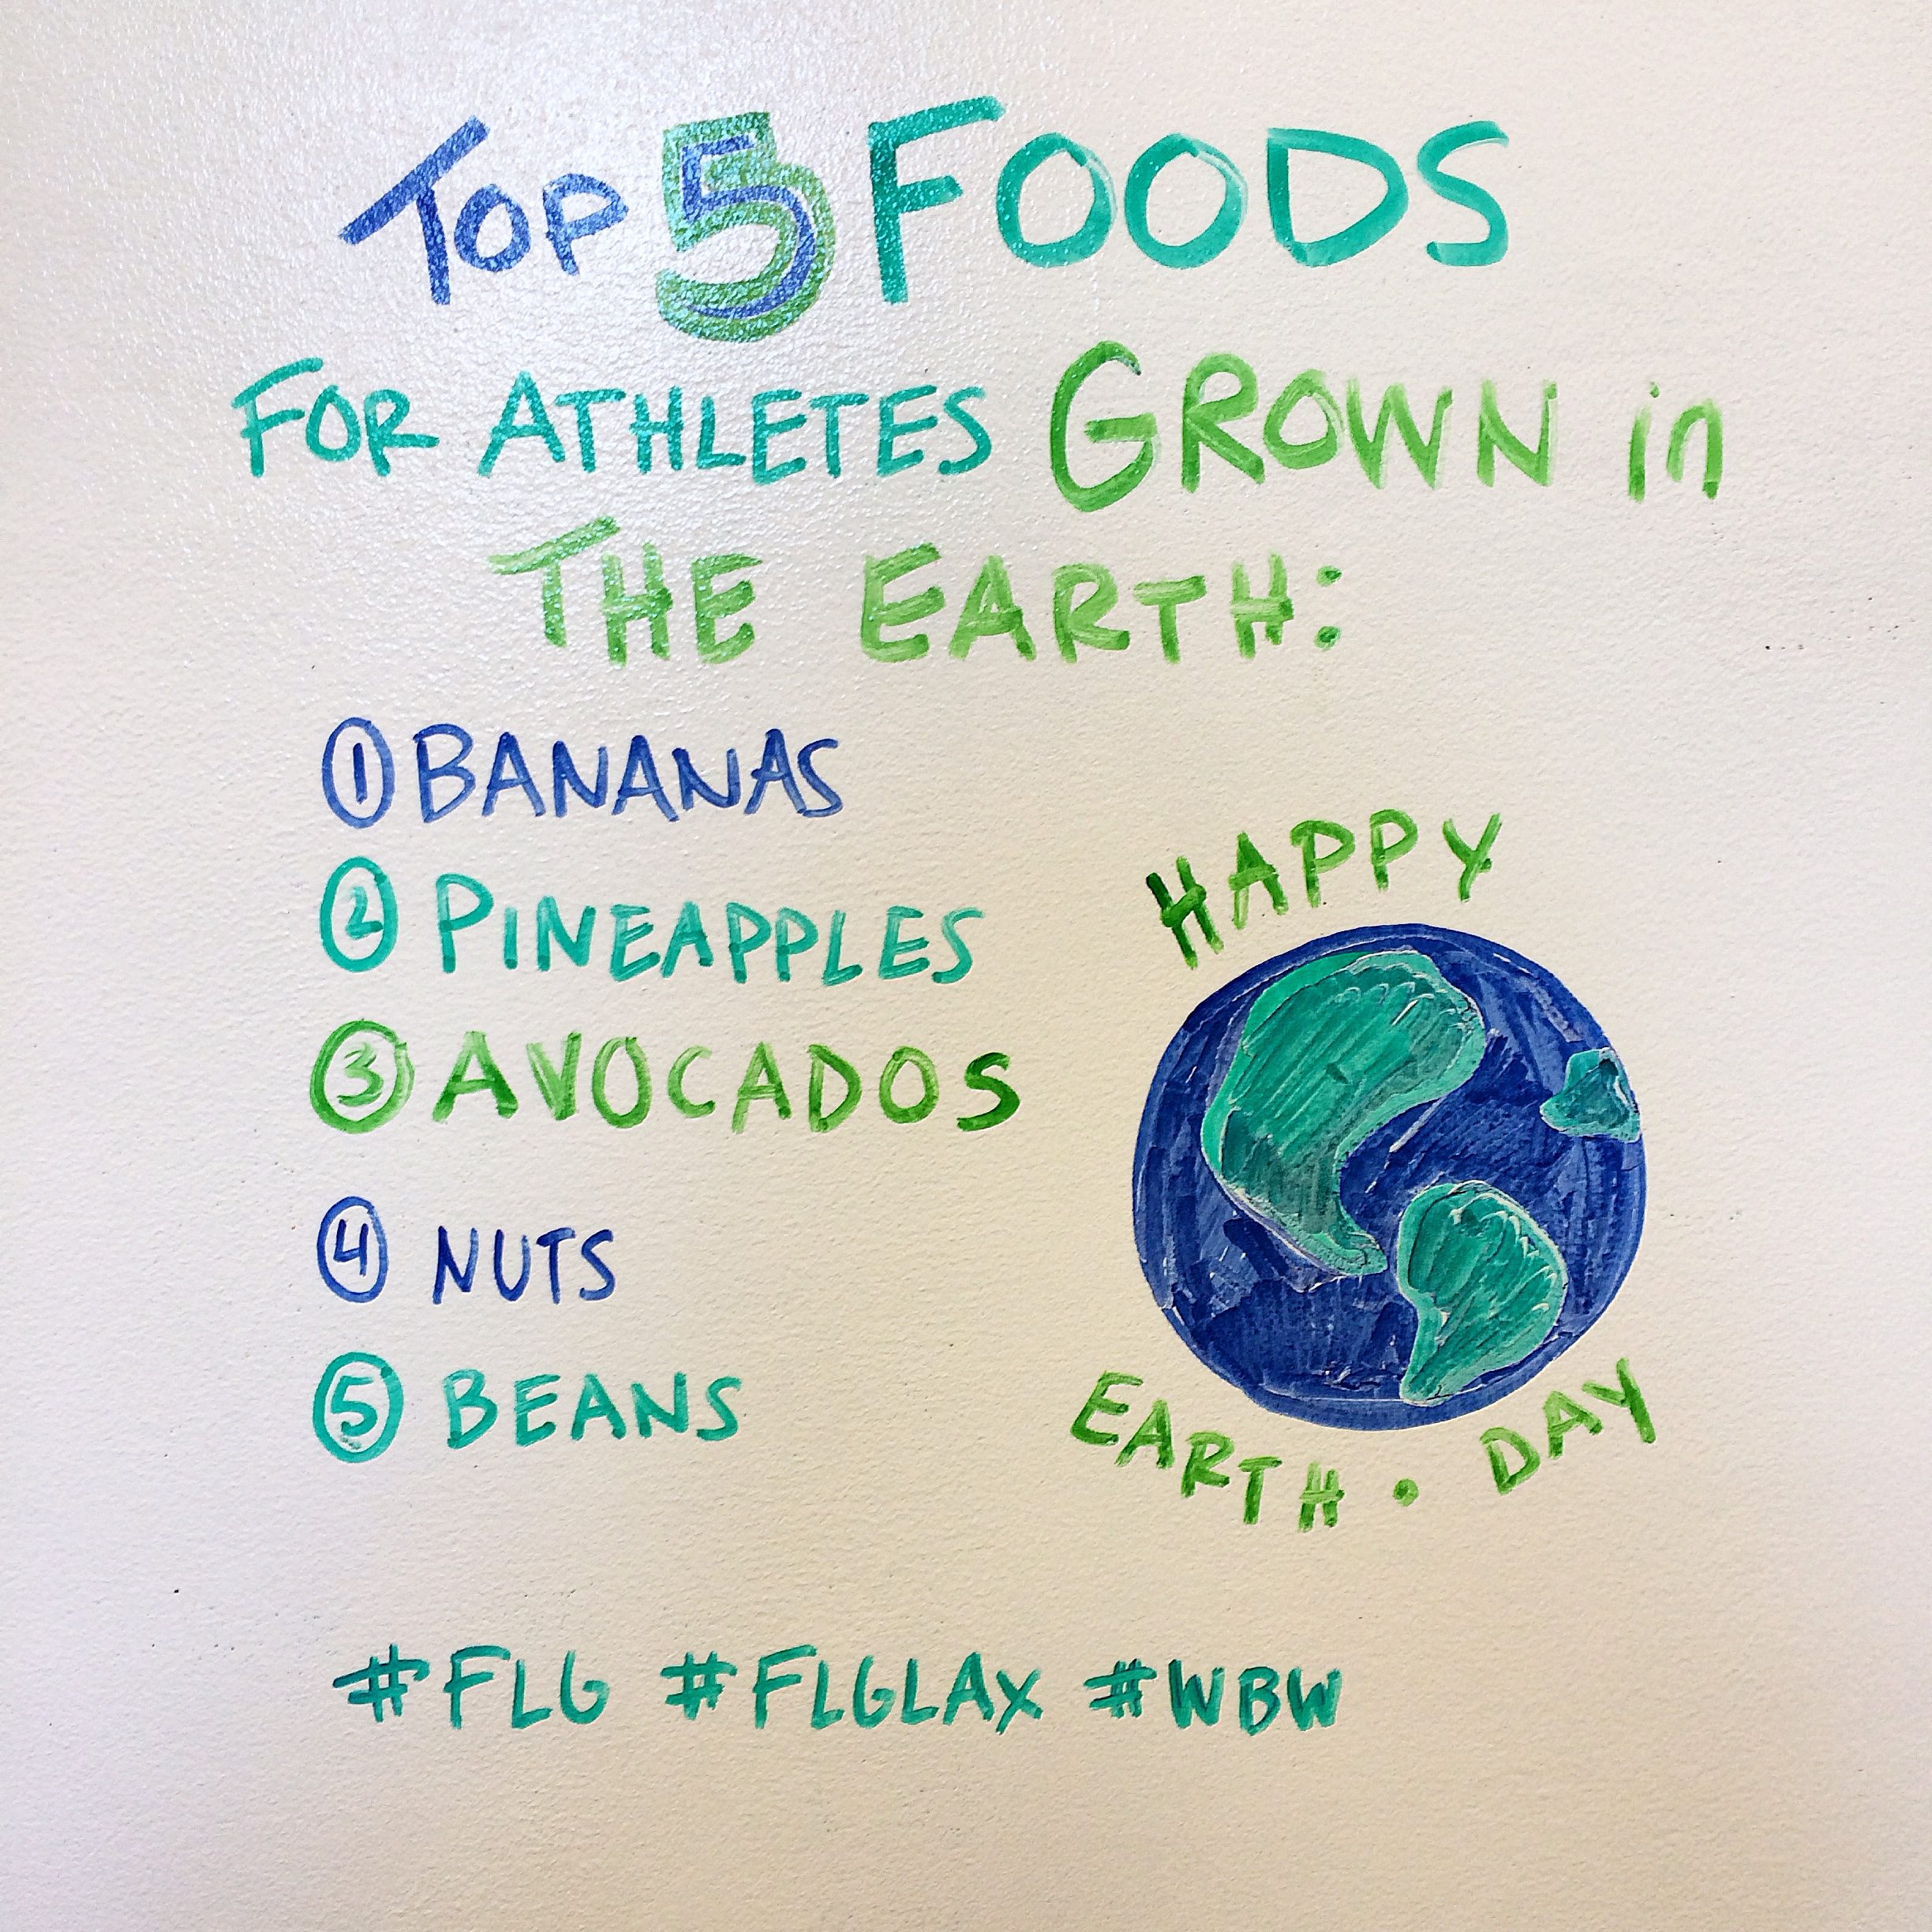 TOP 5 FOODS
FOR ATHLETES GROWN in
THE EARTH:
① BANANAS
② PINEAPPLES
③ AVOCADOS
④ NUTS
⑤ BEANS
HAPPY
EARTH • DAY
#FLG #FLGLAX #WBW